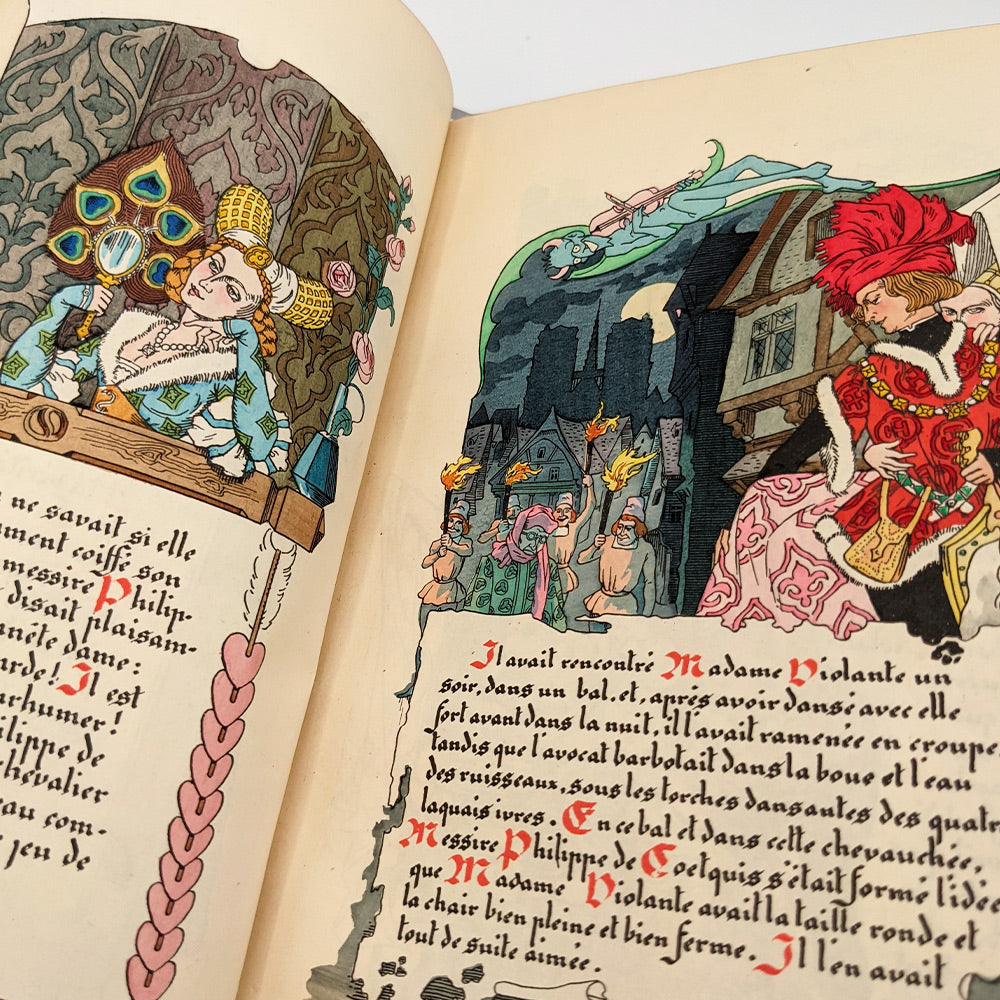 ne savait si elle
ment coiffé son
messire Philip-
disait plaisam-
nête dame:
arde! Il est
rhumer!
ilippe de
chevalier
eau com-
jeu de
Il avait rencontré Madame Violante un
soir, dans un bal, et, après avoir dansé avec elle
fort avant dans la nuit, il l'avait ramenée en croupe,
tandis que l'avocat barbotait dans la boue et l'eau
des ruisseaux, sous les torches dansantes des quatr
laquais ivres. En ce bal et dans cette chevauchée,
Messire Philippe de Coetquis s'était formé l'idée
que Madame Violante avait la taille ronde et
la chair bien pleine et bien ferme. Il l'en avait
tout de suite aimée.